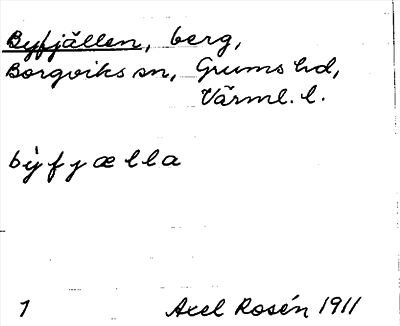 Byfjällen, berg,
Borgviks sn, Grums hd,
Värml. l.
bỳfjælla
1 Axel Rosén 1911